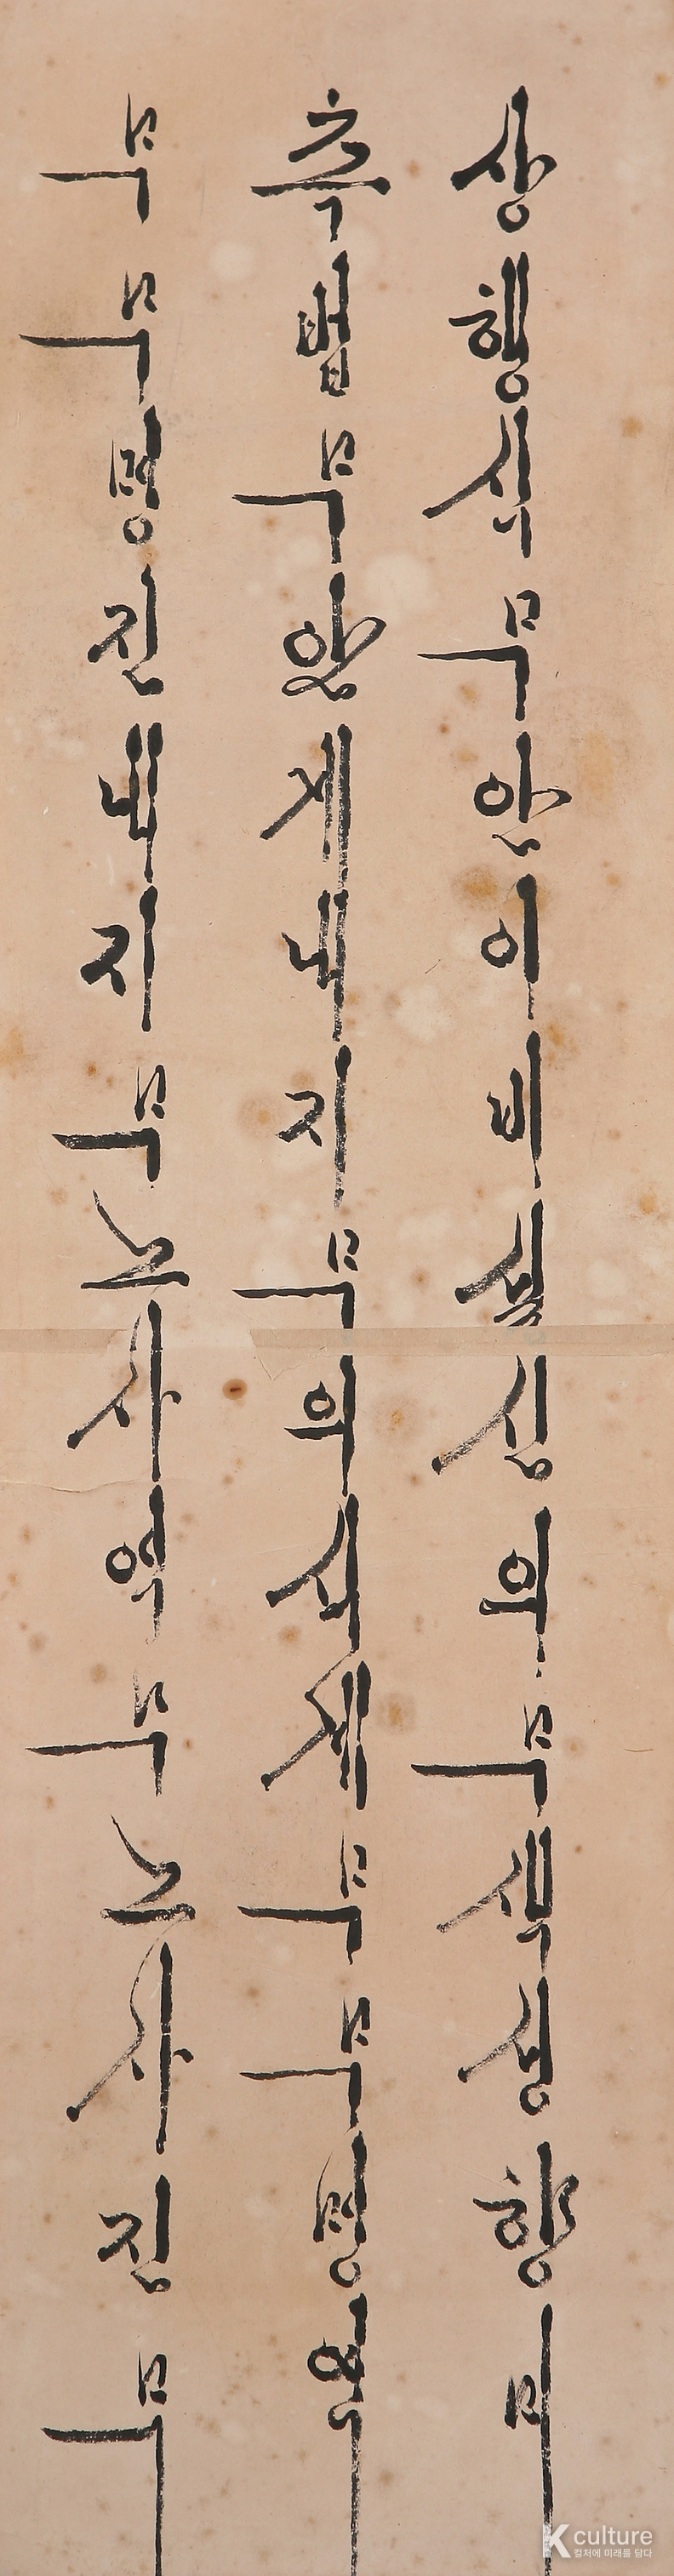 상행식무안이비설신의무색성향미
촉법무안계내지무의식계무무명역
무무명진내지무노사역무노사진무
K culture
컬처에 미래를 담다